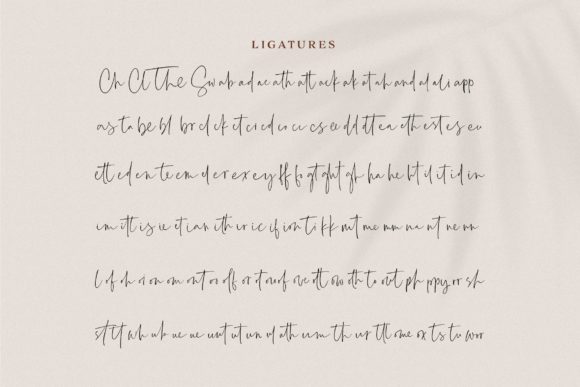 LIGATURES
Ch Cl The Sw ab ad ae ath att ack ak at ah and al ali app
as ta be bl br cl ck ct ci cd co cc cs ee dd dt ea eth est es eu
ett ed en te em el er ex ey ff fo gt ght gh ha he ht il it id in
im itt is ie et ian ith ur ic if ion ti kk mt me mm na nt ne nn
of oh oi on om ont oo off or ot our of ove ott ow oth to out ph ppy rr sh
st tt wh ub ue ue unt ut un ul ath um th us ttl ome ox ts tu wor